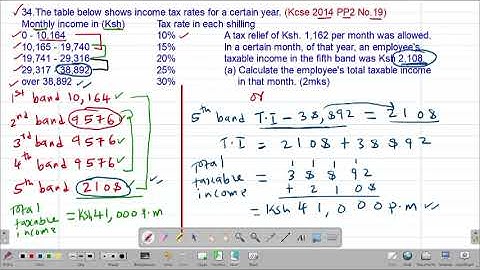 34.The table below shows income tax rates for a certain year. (Kcse 2014 PP2 No.19)
Monthly income in (Ksh) Tax rate in each shilling
0 - 10,164 10%
10,165 - 19,740 15%
19,741 - 29,316 20%
29,317 - 38,892 25%
over 38,892 30%
A tax relief of Ksh. 1,162 per month was allowed.
In a certain month, of that year, an employee's
taxable income in the fifth band was Ksh 2,108.
(a) Calculate the employee's total taxable income
in that month. (2mks)
1st band 10,164
2nd band 9576
3rd band 9576
4th band 9576
5th band 2108
Total
taxable
income
= Ksh 41,000 p.m
or
5th band T.I - 38,892 = 2108
T.I = 2108 + 38892
Total
taxable
income
1 1 1 1
= 3 8 8 9 2
+ 2 1 0 8
= Ksh 41,000 p.m